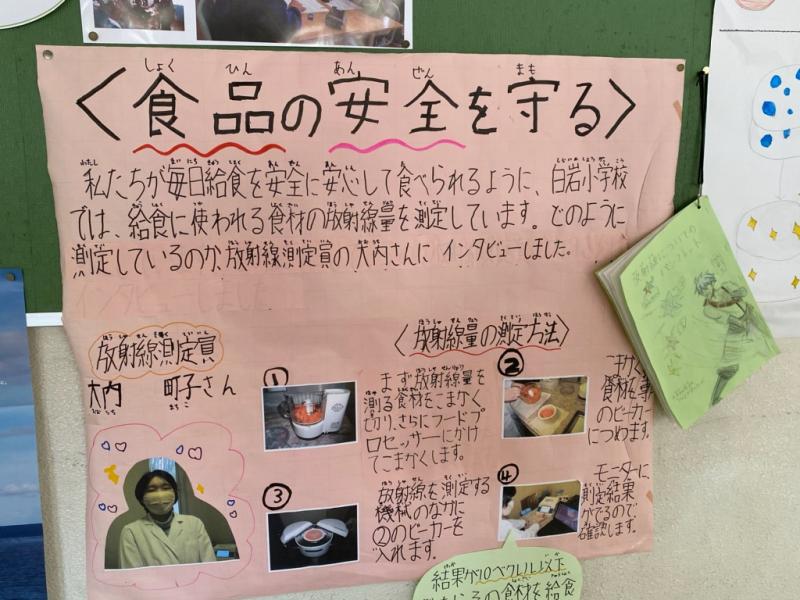 〈食品の安全を守る〉
私たちが毎日給食を安全に安心して食べられるように、白岩小学校
では、給食に使われる食材の放射線量を測定しています。どのように
測定しているのか、放射線測定員の大内さんにインタビューしました。
インタビューしました。
放射線測定員
大内 町子さん
〈放射線量の測定方法〉
①
まず放射線量を
測る食材をこまかく
切り、さらにフードプ
ロセッサーにかけ
てこまかくします。
②
食材を
のビーカー
につめます。
③
放射線を測定する
機械のなかに
②のビーカーを
入れます。
④
モニターに、
測定結果
がでるので
確認します。
結果が10ベクレル以下
の食材を給食
放射線についての